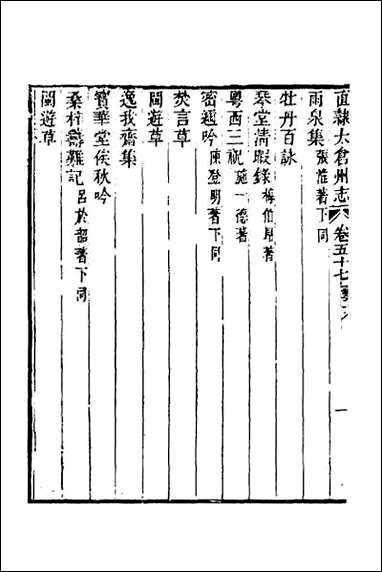 直隸太倉州志 卷五十七 藝文 一
雨泉集 張淮著下同
牡丹百詠
琴堂清暇錄 梅伯昂著
粵西三祝 施一德著
密遊吟 陳登明著下同
焚言草
閩遊草
逸我齋集
寶華堂俟秋吟
桑梓壽難記 呂於韶著下同
閩遊草